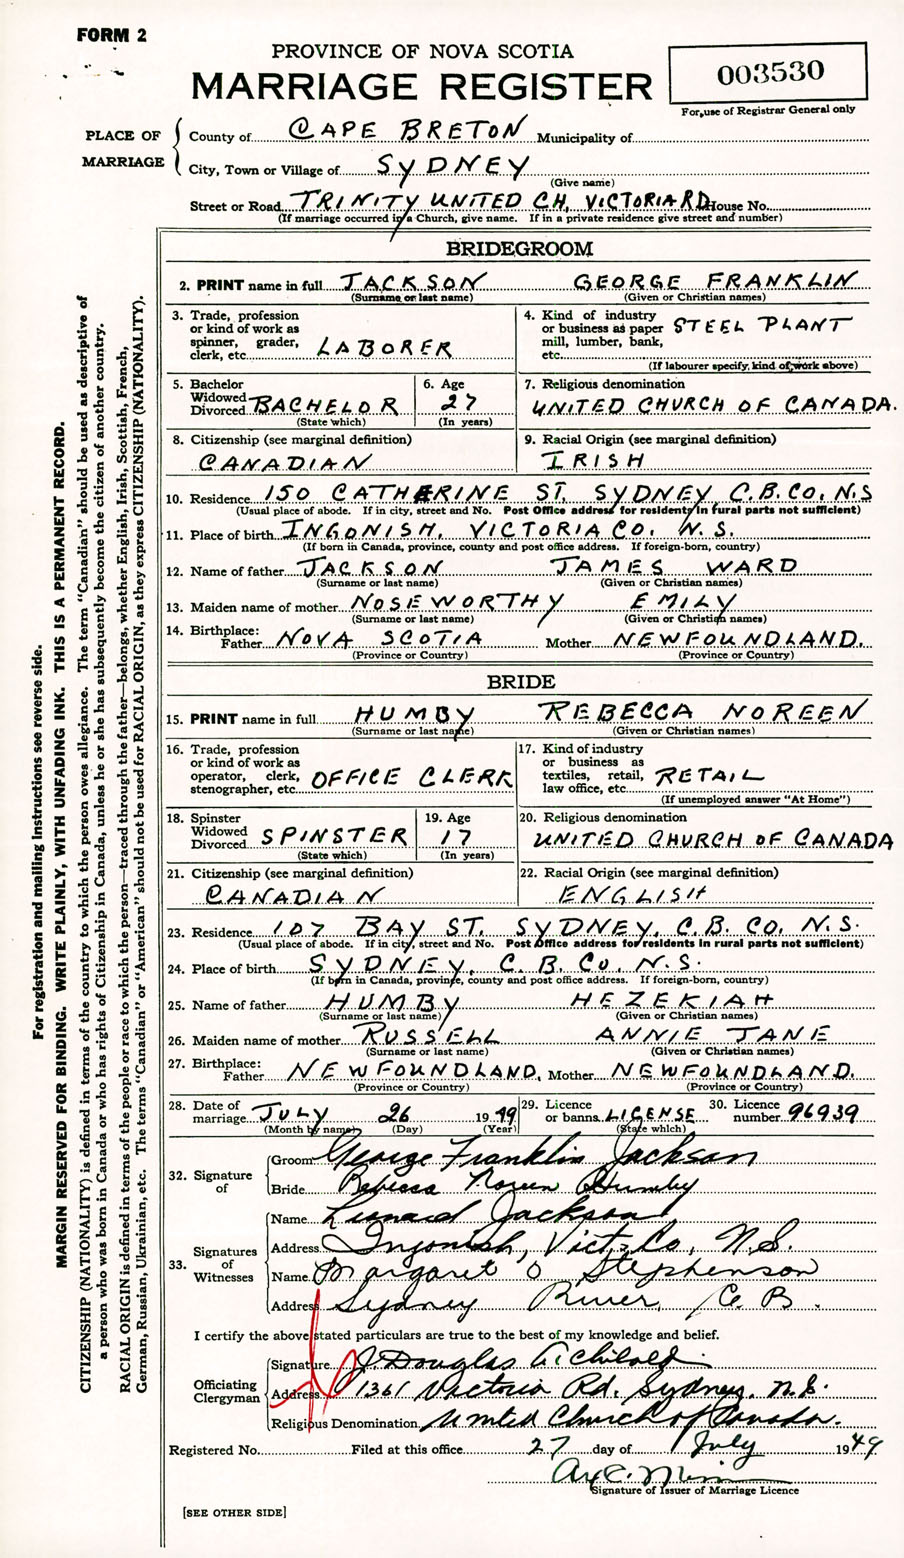 FORM 2
PROVINCE OF NOVA SCOTIA
MARRIAGE REGISTER
003530
For use of Registrar General only
PLACE OF MARRIAGE
County of CAPE BRETON Municipality of
City, Town or Village of SYDNEY
(Give name)
Street or Road TRINITY UNITED CH, VICTORIA RD House No.
(If marriage occurred in a Church, give name. If in a private residence give street and number)
BRIDEGROOM
2. PRINT name in full JACKSON GEORGE FRANKLIN
(Surname or last name) (Given or Christian names)
3. Trade, profession or kind of work as spinner, grader, clerk, etc. LABORER
4. Kind of industry or business as paper mill, lumber, bank, etc. STEEL PLANT
(If labourer specify kind of work above)
5. Bachelor Widowed Divorced BACHELOR
(State which)
6. Age 27
(In years)
7. Religious denomination
UNITED CHURCH OF CANADA.
8. Citizenship (see marginal definition)
CANADIAN
9. Racial Origin (see marginal definition)
IRISH
10. Residence 150 CATHERINE ST, SYDNEY, C.B. CO, N.S
(Usual place of abode. If in city, street and No. Post Office address for residents in rural parts not sufficient)
11. Place of birth INGONISH, VICTORIA CO. N.S.
(If born in Canada, province, county and post office address. If foreign-born, country)
12. Name of father JACKSON JAMES WARD
(Surname or last name) (Given or Christian names)
13. Maiden name of mother NOSEWORTHY EMILY
(Surname or last name) (Given or Christian names)
14. Birthplace: Father NOVA SCOTIA Mother NEWFOUNDLAND.
(Province or Country) (Province or Country)
BRIDE
15. PRINT name in full HUMBY REBECCA NOREEN
(Surname or last name) (Given or Christian names)
16. Trade, profession or kind of work as operator, clerk, stenographer, etc. OFFICE CLERK
17. Kind of industry or business as textiles, retail, law office, etc. RETAIL
(If unemployed answer "At Home")
18. Spinster Widowed Divorced SPINSTER
(State which)
19. Age 17
(In years)
20. Religious denomination
UNITED CHURCH OF CANADA
21. Citizenship (see marginal definition)
CANADIAN
22. Racial Origin (see marginal definition)
ENGLISH
23. Residence 107 BAY ST. SYDNEY, C.B. CO, N.S.
(Usual place of abode. If in city, street and No. Post Office address for residents in rural parts not sufficient)
24. Place of birth SYDNEY, C.B. CO, N.S.
(If born in Canada, province, county and post office address. If foreign-born, country)
25. Name of father HUMBY HEZEKIAH
(Surname or last name) (Given or Christian names)
26. Maiden name of mother RUSSELL ANNIE JANE
(Surname or last name) (Given or Christian names)
27. Birthplace: Father NEWFOUNDLAND, Mother NEWFOUNDLAND.
(Province or Country) (Province or Country)
28. Date of marriage JULY 26 1949
(Month by name) (Day) (Year)
29. Licence or banns LICENSE
(State which)
30. Licence number 96939
32. Signature of
Groom George Franklin Jackson
Bride Rebecca Noreen Humby
33. Signatures of Witnesses
Name Leonard Jackson
Address Ingonish, Vict. Co, N.S.
Name Margaret O Stephenson
Address Sydney River, C. B.
I certify the above stated particulars are true to the best of my knowledge and belief.
Officiating Clergyman
Signature J Douglas Archibald
Address 1361 Victoria Rd. Sydney, N.S.
Religious Denomination United Church of Canada.
Registered No. Filed at this office 27 day of July 1949
Signature of Issuer of Marriage Licence
[SEE OTHER SIDE]
For registration and mailing instructions see reverse side.
MARGIN RESERVED FOR BINDING. WRITE PLAINLY, WITH UNFADING INK. THIS IS A PERMANENT RECORD.
CITIZENSHIP (NATIONALITY) is defined in terms of the country to which the person owes allegiance. The term "Canadian" should be used as descriptive of
a person who was born in Canada or who has rights of Citizenship in Canada, unless he or she has subsequently become the citizen of another country.
RACIAL ORIGIN is defined in terms of the people or race to which the person—traced through the father—belongs, whether English, Irish, Scottish, French,
German, Russian, Ukrainian, etc. The terms "Canadian" or "American" should not be used for RACIAL ORIGIN, as they express CITIZENSHIP (NATIONALITY).